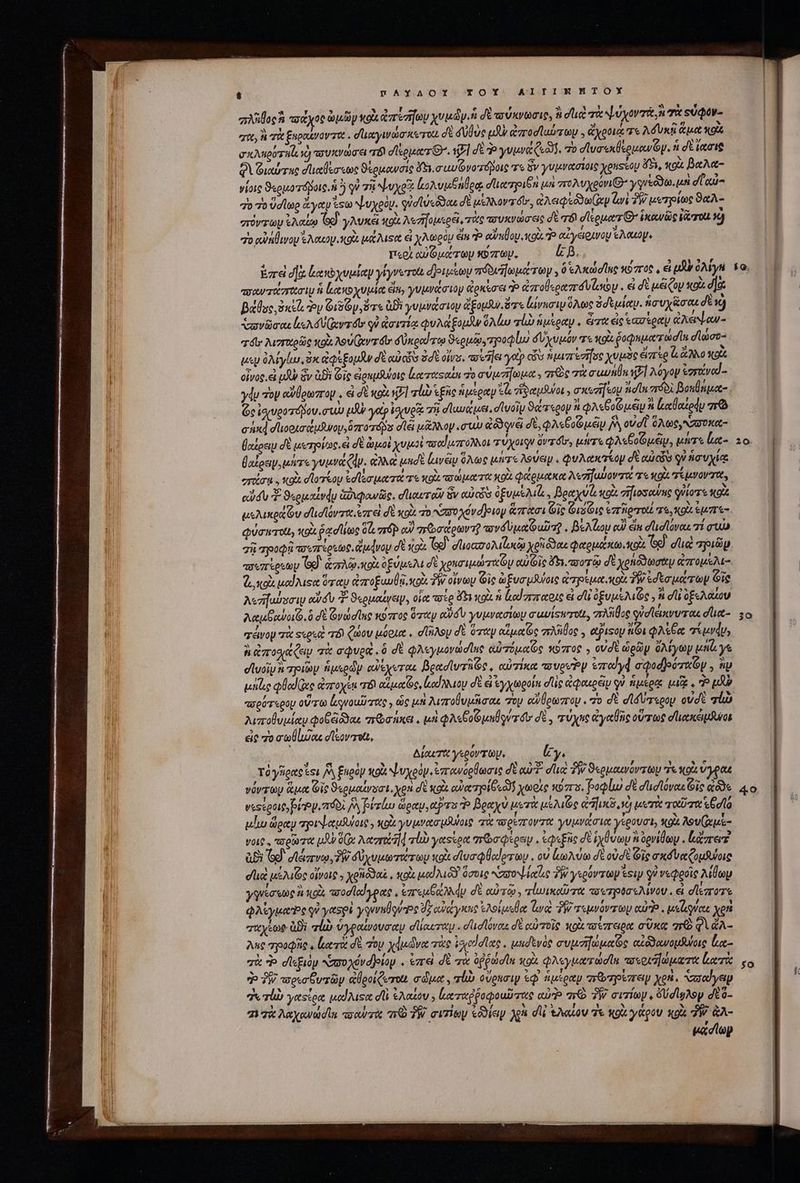 8 ΠΑΥΛΟΥ ΤΟΥ ΑΙΓΙΝΗΤΟΥ
πλῆθος ἢ πάχος ὠμῶν καὶ ἀπέπτων χυμῶν. ἡ δὲ πύκνωσις, ἢ διὰ τὰ ψύχοντα, ἢ τὰ στύφον-
τα, ἢ τὰ ξηραίνοντα. διαγινώσκεται δὲ εὐθὺς μὲν ἀποδυσάντων, ἀχροίᾳ τε λευκῇ ἅμα καὶ
σκληρότητι καὶ πυκνώσει τοῦ δέρματος. κατὰ δὲ τὸ γυμνάζεσθαι, τὸ δυσεκθέρμαντον. ἡ δὲ ἴασις
τῆς τοιαύτης διαθέσεως θέρμανσίς ἐστι. συντονωτέροις τε οὖν γυμνασίοις χρηστέον ἐστί, καὶ βαλα-
νείοις θερμοτέροις. ἡ δὲ ἐν τῇ ψυχρᾷ κολυμβήθρᾳ διατριβὴ μὴ πολυχρόνιος γινέσθω. μὴ δ' αὐ-
τὸ τὸ ὕδωρ ἄγαν ἔστω ψυχρόν. ἐνδύεσθαι δὲ μέλλοντες, ἀλειφέσθωσαν τινὶ τῶν μετρίως θαλ-
πόντων ἐλαίῳ τε γλυκεῖ καὶ λεπτομερεῖ, τὰς πυκνώσεις δὲ τοῦ δέρματος ἱκανῶς ἰᾶται καὶ
τὸ ἀνήθινον ἔλαιον. καὶ μάλιστα εἰ χλωρὸν εἴη τὸ ἄνηθον. καὶ τὸ αἰγείρινον ἔλαιον.
Περὶ αὐτομάτων κόπων. κβ.
Ἐπεὶ διὰ κακοχυμίαν γίγνεται δριμέων περιττωμάτων, ὁ ἑλκώδης κόπος, εἰ μὲν ὀλίγη 10
παντάπασιν ἡ κακοχυμία εἴη, γυμνάσιον ἀρκέσει τὸ ἀποθεραπευτικόν. εἰ δὲ μείζων καὶ διὰ
βάθους, οὐκέτι τὸν τοιοῦτον, οὔτε ἐπὶ γυμνάσιον ἄξομεν, οὔτε κίνησιν ὅλως οὐδεμίαν. ἡσυχάσαι δὲ καὶ
ὑπνῶσαι κελεύσαντες ἐν ἀσιτίᾳ φυλάξομεν ὅλην τὴν ἡμέραν. εἶτα εἰς ἑσπέραν ἀλείψαν-
τες λιπαρῶς καὶ λούσαντες εὐκράτῳ θερμῷ, τροφὴν εὔχυμόν τε καὶ ῥοφηματώδη δώσο-
μεν ὀλίγην, οὐκ ἀφέξομεν δὲ αὐτοὺς οὐδὲ οἴνου. πέττει γὰρ τοὺς ἡμιπέπτους χυμοὺς εἴπερ τι ἄλλο καὶ
οἶνος. εἰ μὲν οὖν ἐπὶ τοῖς εἰρημένοις κατασταίη τὸ σύμπτωμα, πρὸς τὰ συνήθη κατὰ λόγον ἐπανά-
γειν τὸν ἄνθρωπον, εἰ δὲ καὶ κατὰ τὴν ἑξῆς ἡμέραν ἔτι παραμένοι, σκεπτέον ἤδη περὶ βοηθήμα-
τος ἰσχυροτέρου. συμμέτρου γὰρ ἰσχυρᾷ τῇ δυνάμει, δυοῖν θάτερον ἢ φλεβοτομεῖν ἢ καθαίρειν προ-
σῆκε διορισάμενον, ὁποτέρου δεῖ μᾶλλον. σὺν ἀσθενεῖ δὲ, φλεβοτομεῖν μὲν οὐδ' ὅλως, ὑποκα-
θαίρειν δὲ μετρίως. εἰ δὲ ὠμοὶ χυμοὶ πάμπολλοι τύχοιεν ὄντες, μήτε φλεβοτομεῖν, μήτε κα- 20
θαίρειν, μήτε γυμνάζειν. ἀλλὰ μηδὲ κινεῖν ὅλως μήτε λούειν. φυλακτέον δὲ αὐτοὺς ἐν ἡσυχίᾳ
πάσῃ, καὶ δοτέον ἐδέσματά τε καὶ πώματα καὶ φάρμακα λεπτύνοντά τε καὶ τέμνοντα,
ἄνευ τοῦ θερμαίνειν ἀφανῶς. διαιτᾶν οὖν αὐτοὺς ὀξυμέλιτι, βραχύ τι καὶ πτισάνης ἐνίοτε καὶ
μελικράτου διδόντας. ἐπεὶ δὲ καὶ τὸ ὑποχόνδριον ἅπασι τοῖς τοιούτοις ἐπῆρταί τε, καὶ ἐμπε-
φύσηται, καὶ ῥᾳδίως ὅτι περ ἂν προσάρωνται πνευματοῦται. βέλτιον ἂν εἴη διδόναι τι σὺν
τῇ τροφῇ πεπέρεως. ἄμεινον δὲ καὶ τῷ διοσπολιτικῷ χρῆσθαι φαρμάκῳ. καὶ τῷ διὰ τριῶν
πεπέρεων τῷ ἁπλῷ. καὶ ὀξύμελι δὲ χρησιμώτατον αὐτοῖς ἐστι. ποτῷ δὲ χρήσθωσαν ἀπομέλι-
τι, καὶ μάλιστα ὅταν ἀποξυνθῇ. καὶ τῶν οἴνων τοῖς ὠξυσμένοις ἀτρέμα. καὶ τῶν ἐδεσμάτων τοῖς
λεπτύνουσιν ἄνευ τοῦ θερμαίνειν, οἷα πέρ ἐστι καὶ ἡ κάππαρις εἰ δι' ὀξυμέλιτος, ἢ δι' ὀξελαίου
λαμβάνοιτο. ὁ δὲ τονώδης κόπος ὅταν ἄνευ γυμνασίων συνίστηται, πλῆθος ἐνδείκνυται δια- 30
τεῖνον τὰ στερεὰ τοῦ ζώου μόρια. δῆλον δὲ ὅταν αἵματος πλῆθος, ἄριστον ἤτοι φλέβα τέμνειν,
ἢ ἀποσχάζειν τὰ σφυρά. ὁ δὲ φλεγμονώδης αὐτόματος κόπος, οὐδὲ ὡρῶν ὀλίγων μήτι γε
δυοῖν ἢ τριῶν ἡμερῶν ἀνέχεται βραδυτῆτος, αὐτίκα πυρετὸν ἐπάγει σφοδρότατον, ἢν
μή τις φθάσας ἀποχέῃ τοῦ αἵματος, κάλλιον δὲ εἰ ἐγχωροίη δὶς ἀφαιρεῖν ἐν ἡμέρᾳ μιᾷ. τὸ μὲν
πρότερον οὕτω κενοῦντας, ὡς μὴ λιποθυμῆσαι τὸν ἄνθρωπον. τὸ δὲ δεύτερον οὐδὲ τὴν
λιποθυμίαν φοβεῖσθαι προσῆκε. μὴ φλεβοτομηθέντες δὲ, τύχης ἀγαθῆς οὕτως διακείμενοι
εἰς τὸ σωθῆναι δέονται.
Δίαιτα γερόντων. κγ.
Τὸ γῆρας ἐστι μὲν ξηρὸν καὶ ψυχρόν. ἐπανόρθωσις δὲ αὐτοῦ διὰ τῶν θερμαινόντων τε καὶ ὑγραι
νόντων ἅμα τοῖς θερμαίνουσι. χρὴ δὲ καὶ ἀνατρίβεσθαι χωρὶς κόπου. τροφὴν δὲ διδόναι τοῖς ἀσθε 40
νεστέροις, τρίτον. περὶ μὲν τρίτην ὥραν, ἄρτου τὸ βραχὺ μετὰ μέλιτος ἀττικοῦ, καὶ μετὰ ταῦτα ἑβδό
μην ὥραν τριψαμένοις, καὶ γυμνασαμένοις τὰ πρέποντα γυμνάσια γέρουσι, καὶ λουσαμέ-
νοις, πρῶτα μὲν ὅσα λαπάττει τὴν γαστέρα προσφέρειν. ἐφεξῆς δὲ ἰχθύων ἢ ὀρνίθων. κἄπειτα
ἐπὶ τῷ δείπνῳ, τῶν εὐχυμωτάτων καὶ δυσφθάρτων. οὐ κωλύω δὲ οὐδὲ τοῖς σκευαζομένοις
διὰ μέλιτος οἴνοις, χρῆσθαι, καὶ μάλισθ' ὅσοις ὑποψία τις τῶν γερόντων ἐστὶν ἐν νεφροῖς λίθων
γενέσεως ἢ καὶ ποδάγρας, ἐπεμβάλλειν δὲ αὐτῷ, τηνικαῦτα πετροσελίνου. εἰ δέ ποτε
φλέγματος ἐν γαστρὶ γεννηθέντος ἐξ ἀνάγκης ἑλοίμεθα τινὰ τῶν τεμνόντων αὐτό, μετιέναι χρὴ
ταχέως ἐπὶ τὴν ὑγραίνουσαν δίαιταν. διδόναι δὲ αὐτοῖς καὶ πέπειρα σῦκα πρὸ τῆς ἄλ-
λης τροφῆς, κατὰ δὲ τὸν χειμῶνα τὰς ἰσχάδας. μηδενὸς συμπτώματος αἰσθανομένοις κα-
τὰ τὸ δεξιὸν ὑποχόνδριον. ἐπεὶ δὲ τὰ ὀρρώδη καὶ φλεγματώδη περιττώματα κατὰ 50
τὸ τῶν πρεσβυτῶν ἀθροίζεται σῶμα, τὴν οὔρησιν ἐφ' ἡμέραν προτρέπειν χρή. ὑπάγειν
τε τὴν γαστέρα μάλιστα δι' ἐλαίου, καταρροφοῦντας αὐτὸ πρὸ τῶν σιτίων. εὔδηλον δὲ ὅ-
τι τὰ λαχανώδη πάντα πρὸ τῶν σιτίων ἐσθίειν χρὴ δι' ἐλαίου τε καὶ γάρου καὶ τῶν ἀλ-
μάδων